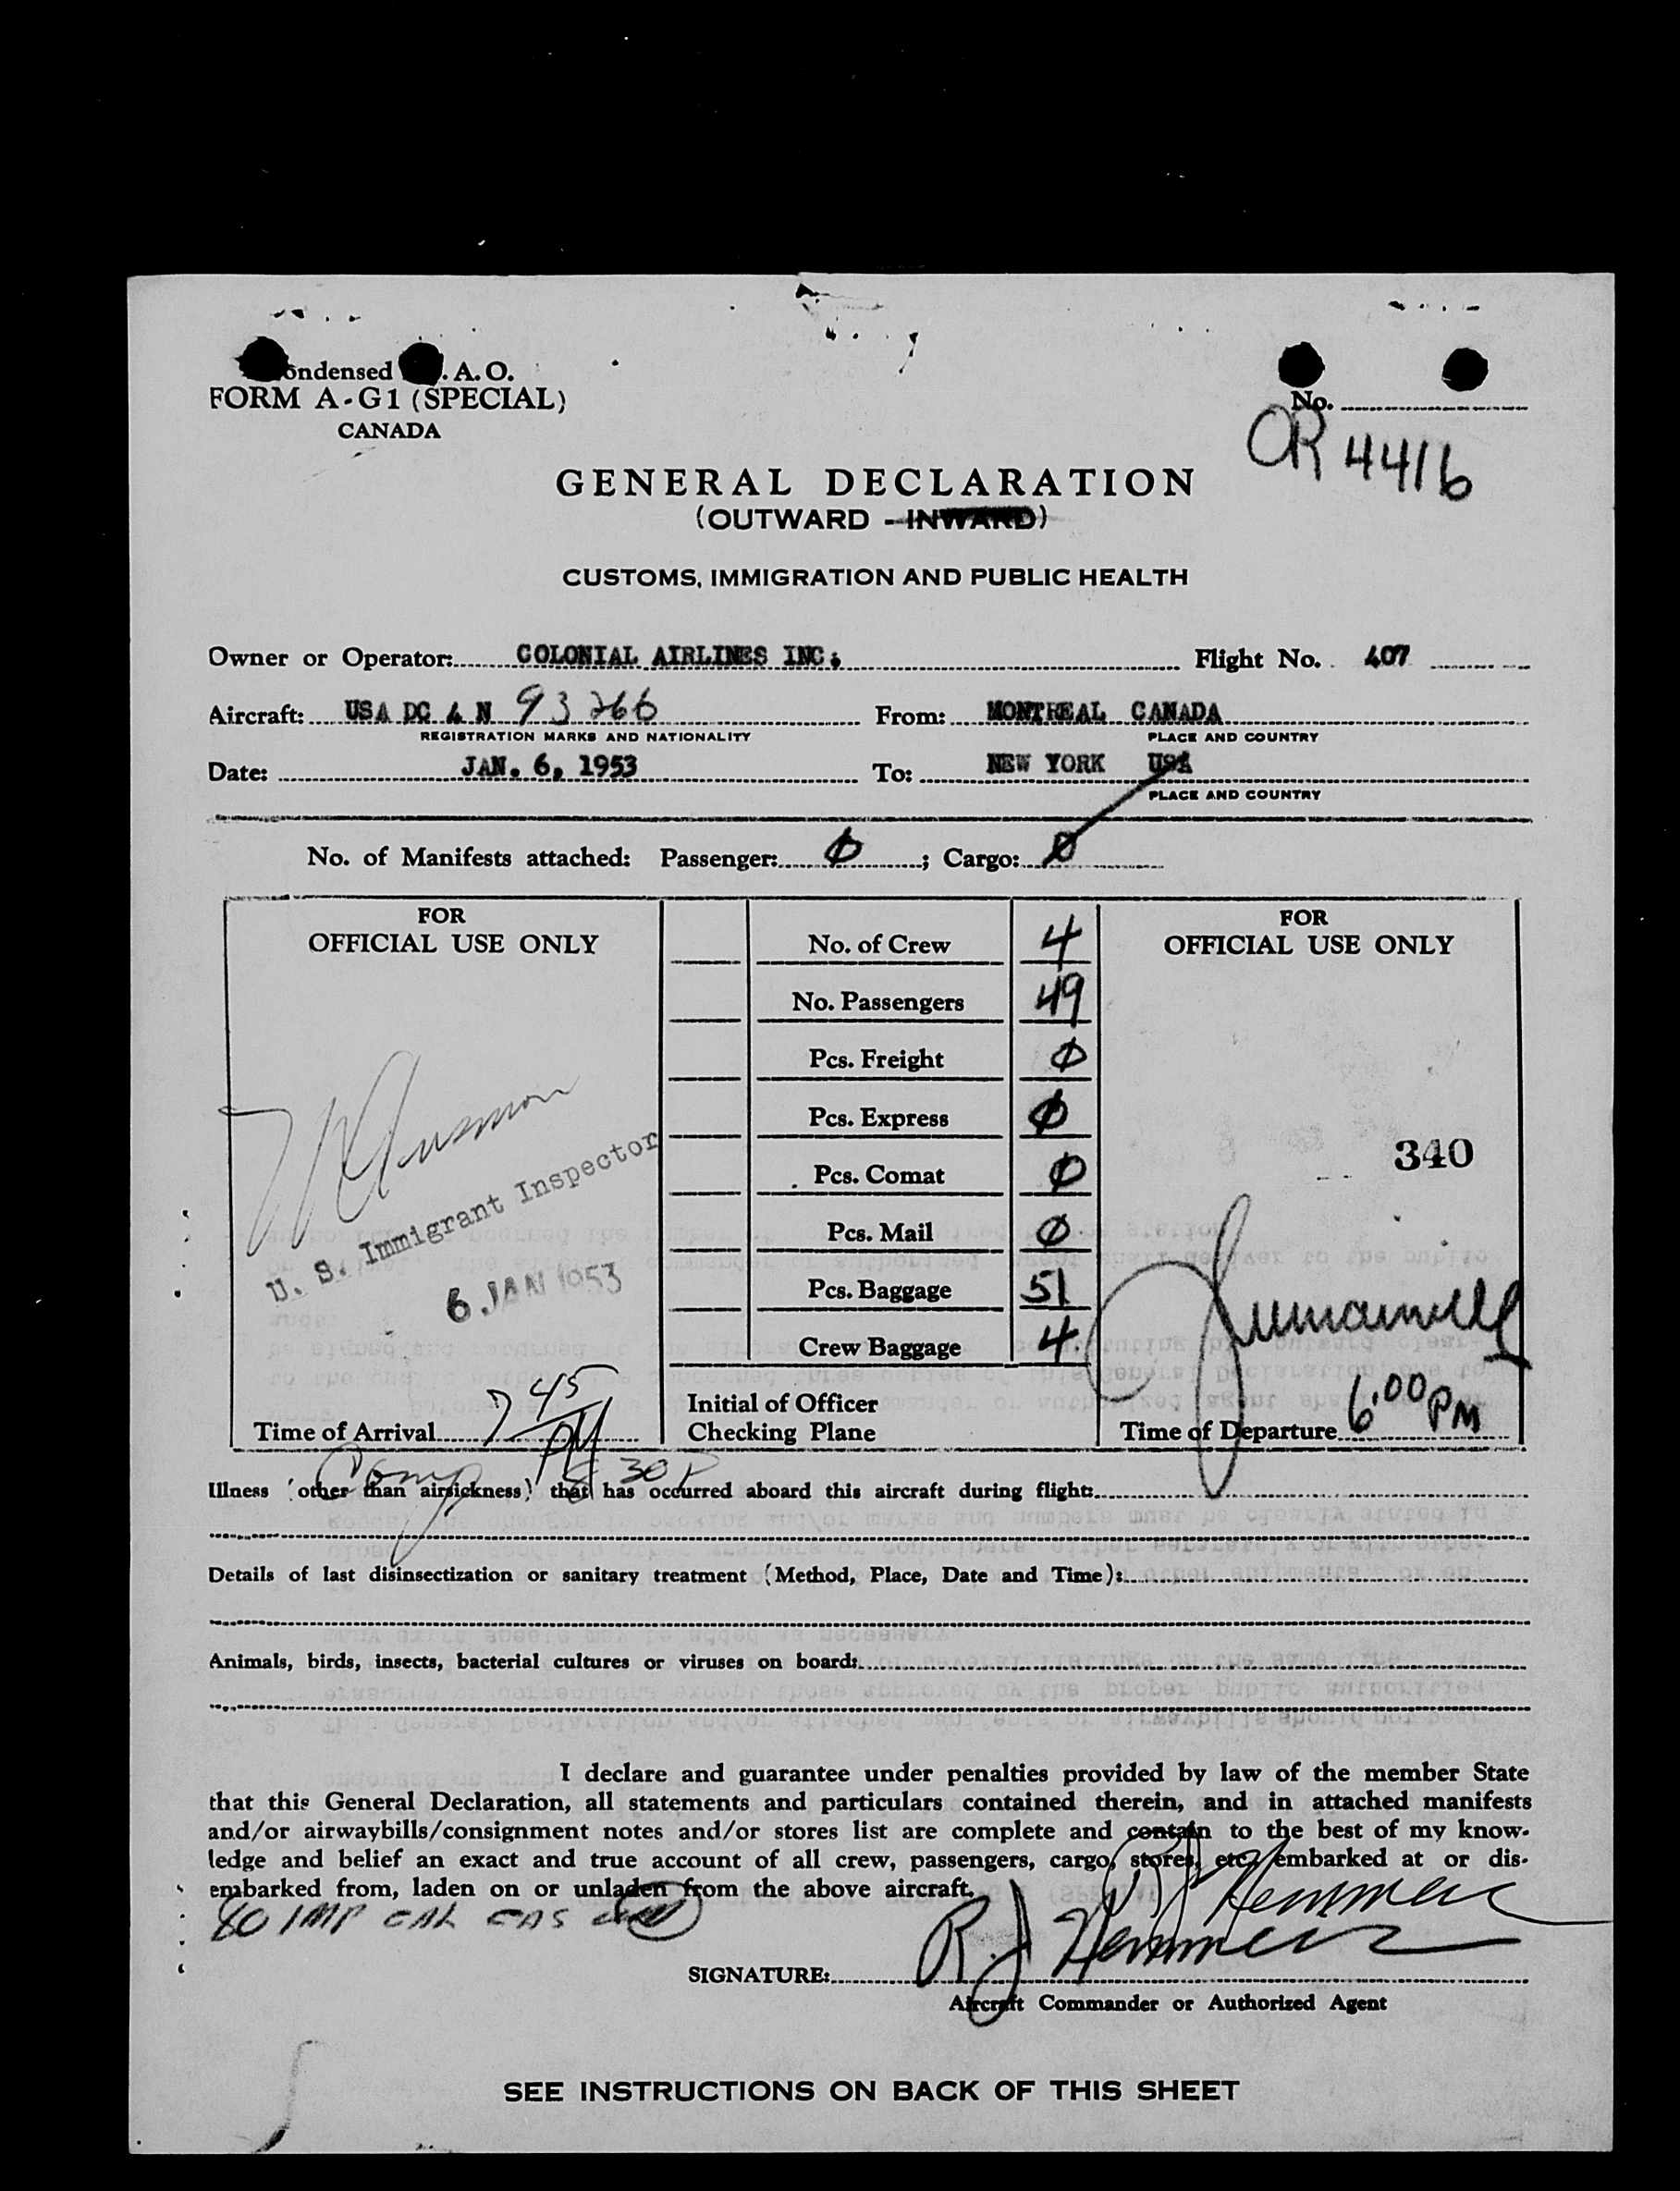 ondensed . A. O.
FORM A-G1 (SPECIAL)
CANADA
No.
OR 4416
GENERAL DECLARATION
(OUTWARD - INWARD)
CUSTOMS, IMMIGRATION AND PUBLIC HEALTH
Owner or Operator: COLONIAL AIRLINES INC. Flight No. 407
Aircraft: USA DC 4 N 93266 From: MONTREAL CANADA
REGISTRATION MARKS AND NATIONALITY PLACE AND COUNTRY
Date: JAN. 6, 1953 To: NEW YORK USA
PLACE AND COUNTRY
No. of Manifests attached: Passenger: Ø ; Cargo: Ø
FOR
OFFICIAL USE ONLY
U. S. Immigrant Inspector
6 JAN 1953
Time of Arrival 7 45 PM
No. of Crew 4
No. Passengers 49
Pcs. Freight Ø
Pcs. Express Ø
Pcs. Comat Ø
Pcs. Mail Ø
Pcs. Baggage 51
Crew Baggage 4
Initial of Officer
Checking Plane
FOR
OFFICIAL USE ONLY
340
Time of Departure 6.00 PM
Comp 8 30 P
Illness (other than airsickness) that has occurred aboard this aircraft during flight:
Details of last disinsectization or sanitary treatment (Method, Place, Date and Time):
Animals, birds, insects, bacterial cultures or viruses on board:
I declare and guarantee under penalties provided by law of the member State
that this General Declaration, all statements and particulars contained therein, and in attached manifests
and/or airwaybills/consignment notes and/or stores list are complete and contain to the best of my know-
ledge and belief an exact and true account of all crew, passengers, cargo, stores, etc. embarked at or dis-
embarked from, laden on or unladen from the above aircraft.
SIGNATURE: R. J.
Aircraft Commander or Authorized Agent
SEE INSTRUCTIONS ON BACK OF THIS SHEET